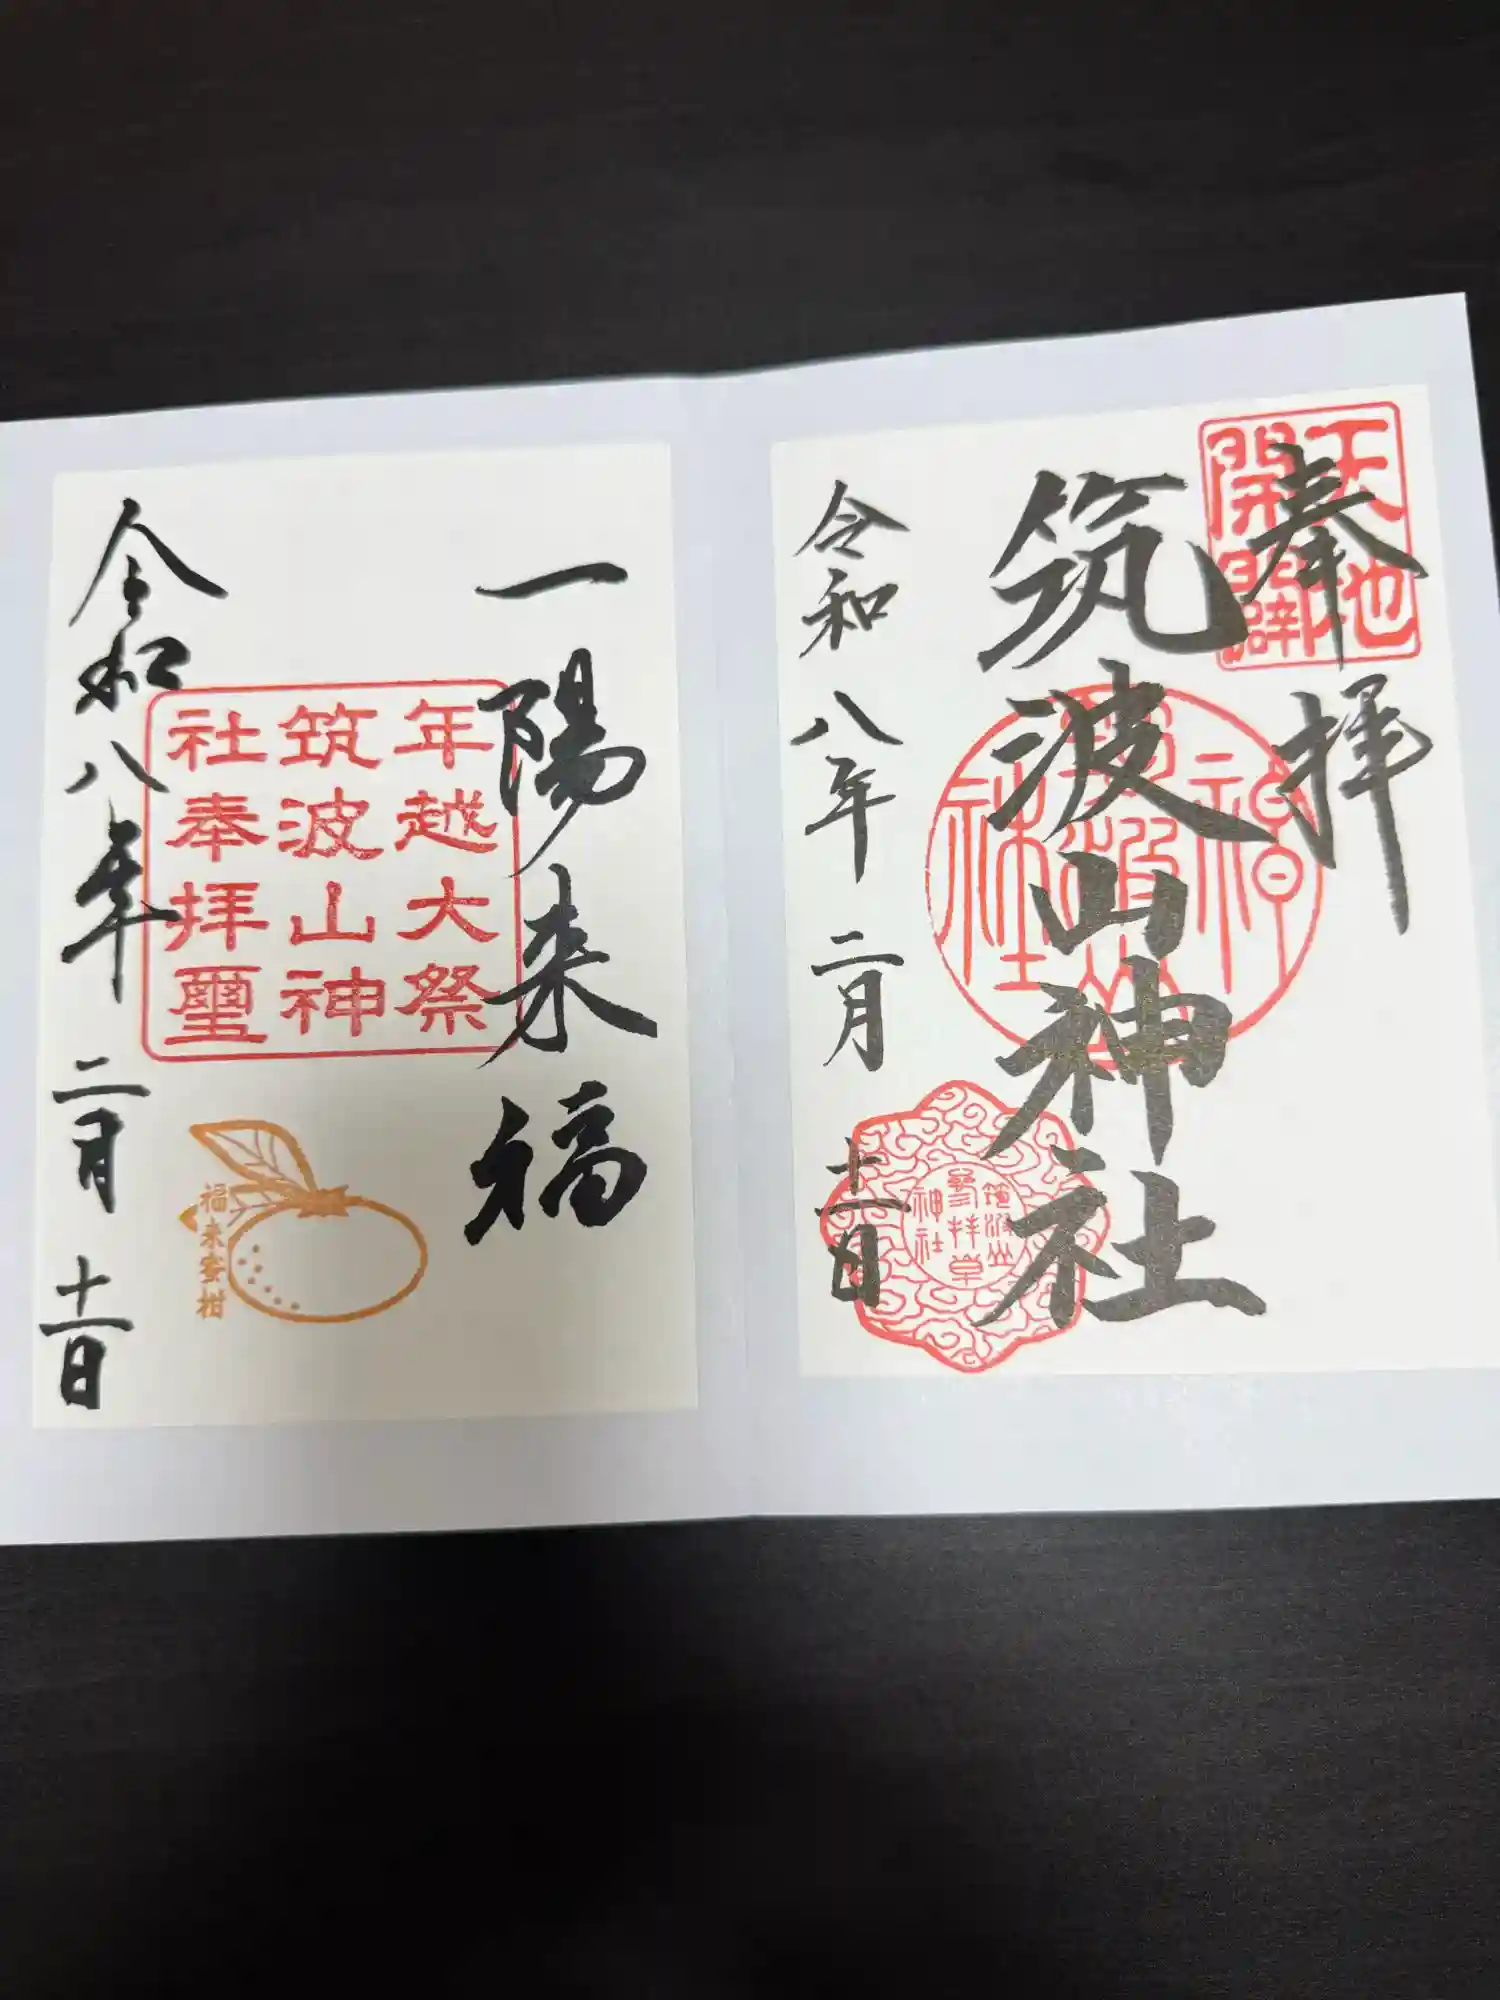 奉拝
天地
開闢
筑波山神社
令和八年二月十一日
筑波山
参拝章
神社
一陽来福
年越大祭
筑波山神
社奉拝璽
福来蜜柑
令和八年二月十一日